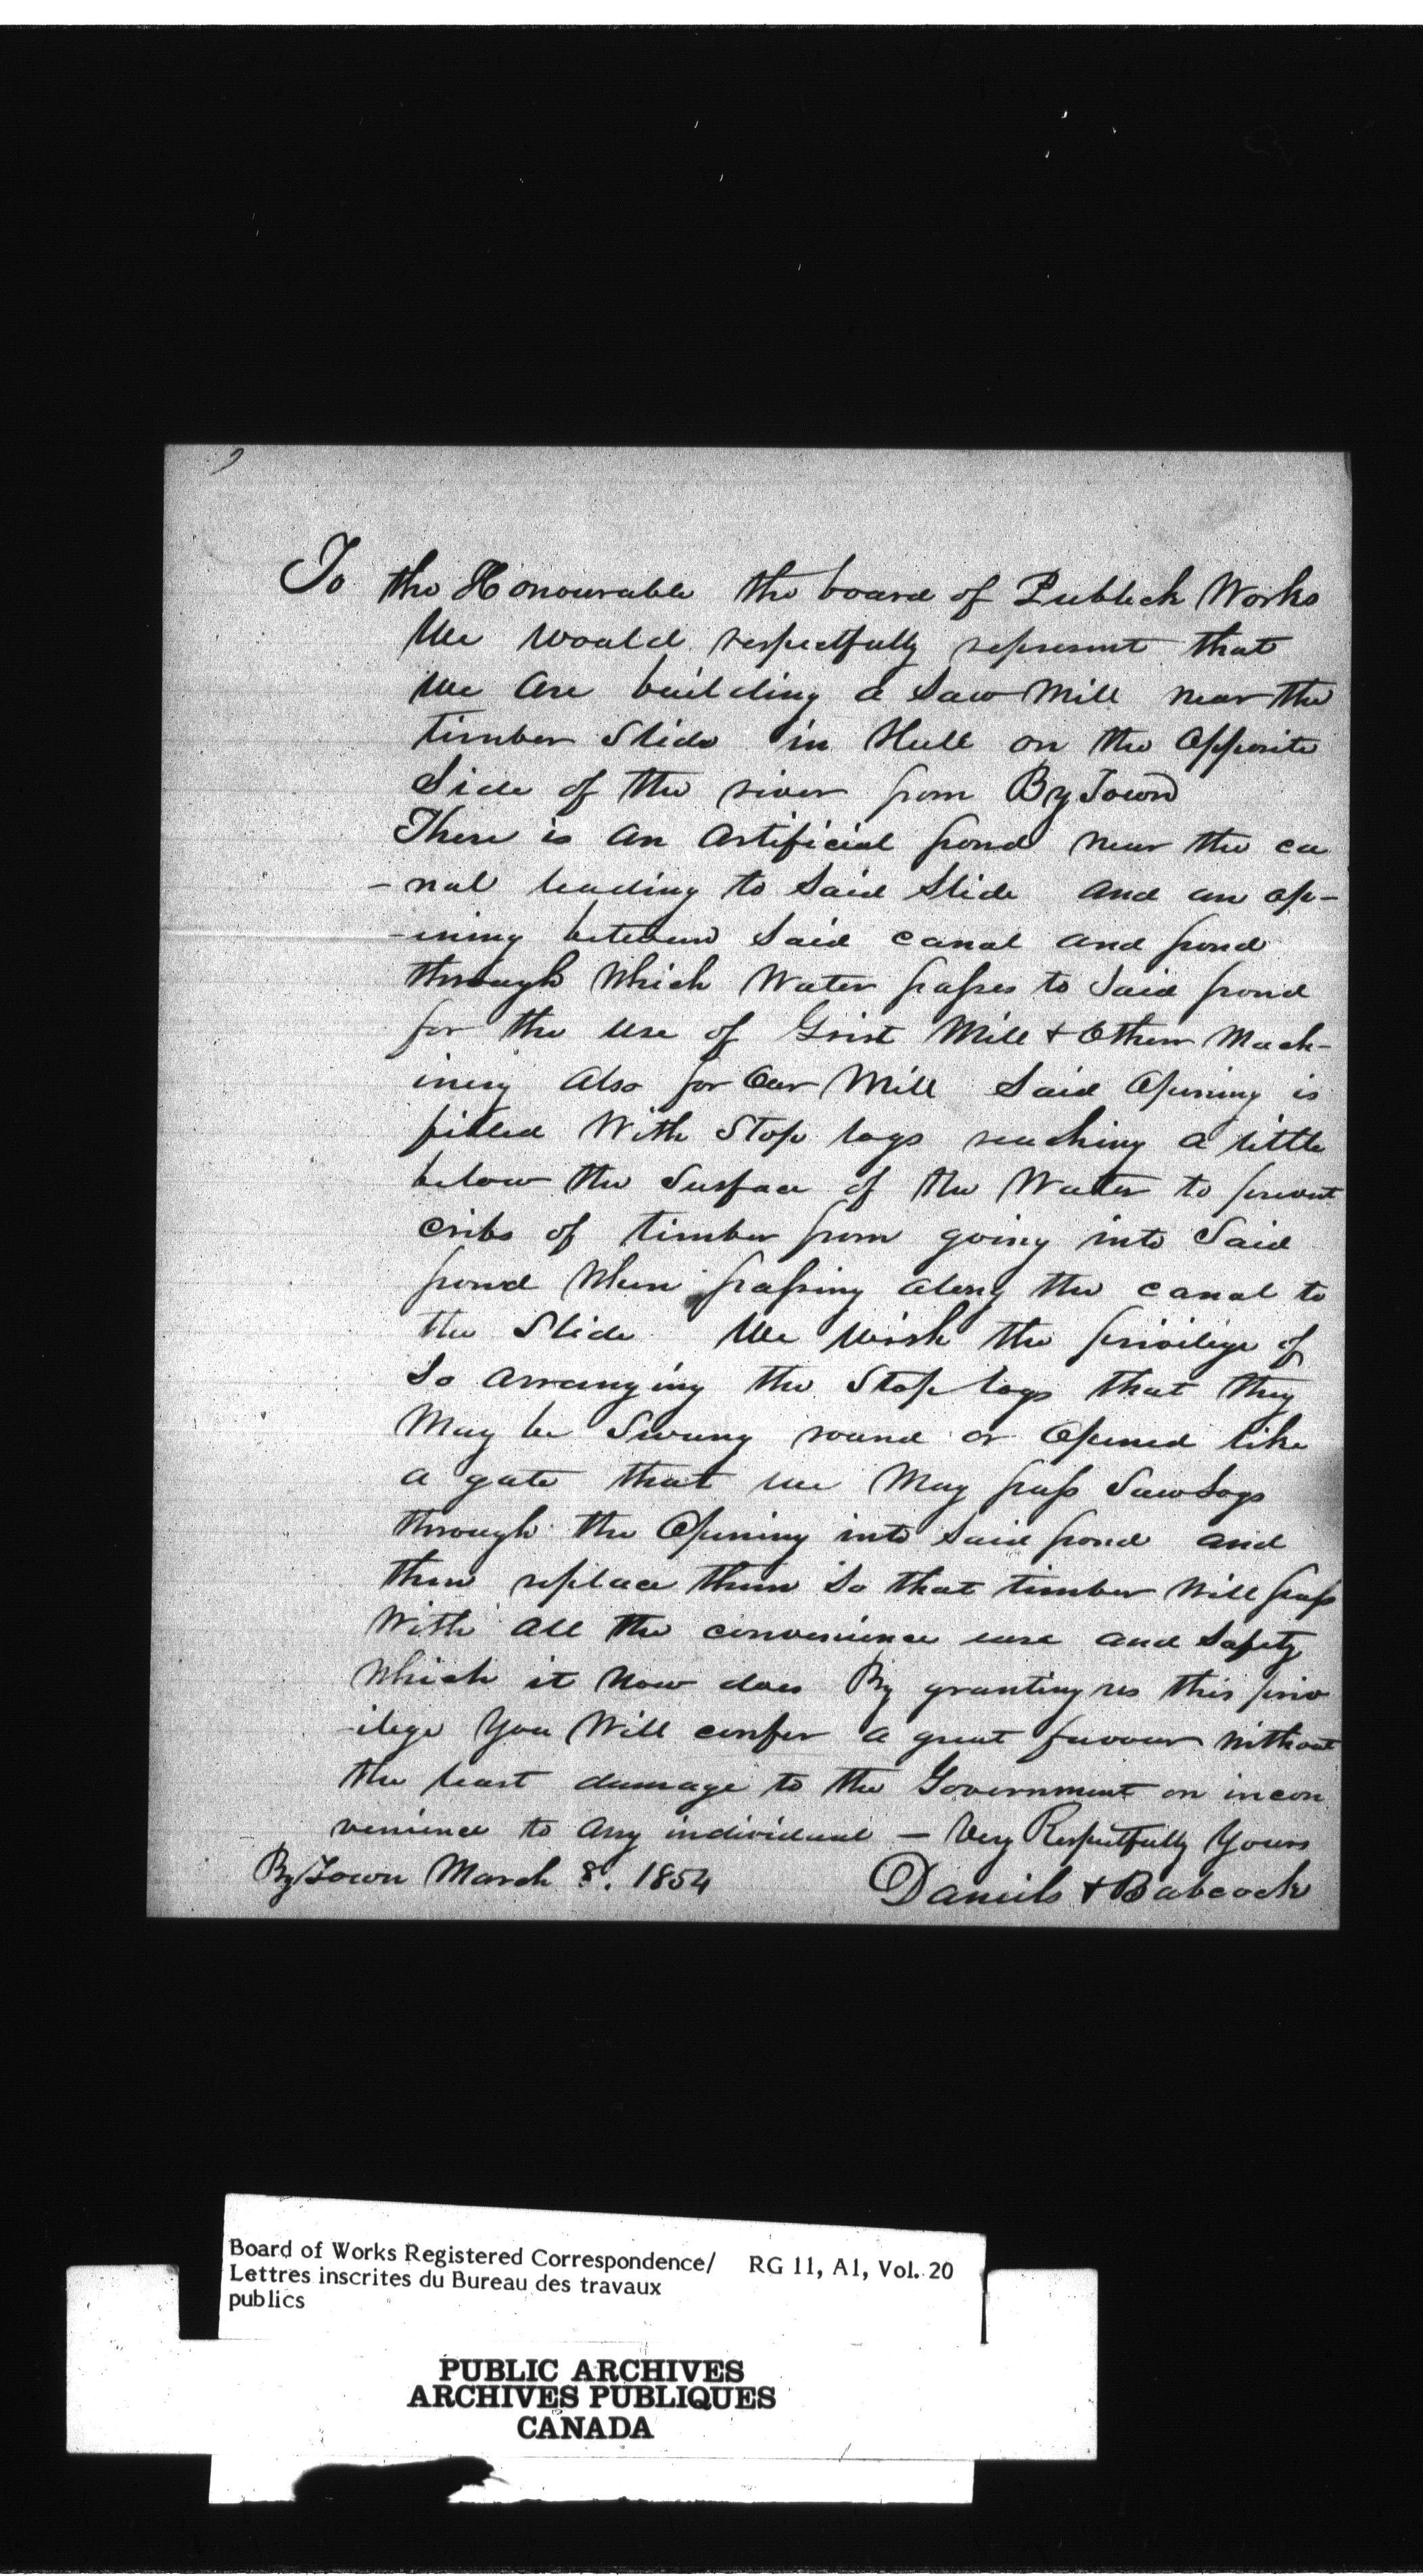 To the Honourable the board of Publick Works
We would respectfully represent that
we are building a Saw Mill near the
timber Slide in Hull on the Opposite
Side of the river from By Town
There is an Artificial pond near the ca
-nal leading to Said Slide and an op-
-ining between Said canal and pond
through Which Water passes to Said pond
for the use of Grist Mill & Other Mach-
inery Also for Our Mill Said Opening is
filled With Stop logs reaching a little
below the Surface of the Water to prevent
cribs of timber from going into Said
pond When passing along the canal to
the Slide We wish the privilige of
So arranging the Stop logs that they
May be Swung round or Opened like
a gate that we May pass Saw Logs
through the Opening into Said pond and
then replace them So that timber Will pass
With all the convenience ease and Safety
Which it Now does By granting us this priv
-ilege You Will confer a great favour without
the least damage to the Government or incon
venience to Any individual — Very Respectfully Yours
By Town March 8. 1854 Daniels & Babcock
Board of Works Registered Correspondence/ RG 11, A1, Vol. 20
Lettres inscrites du Bureau des travaux
publics
PUBLIC ARCHIVES
ARCHIVES PUBLIQUES
CANADA